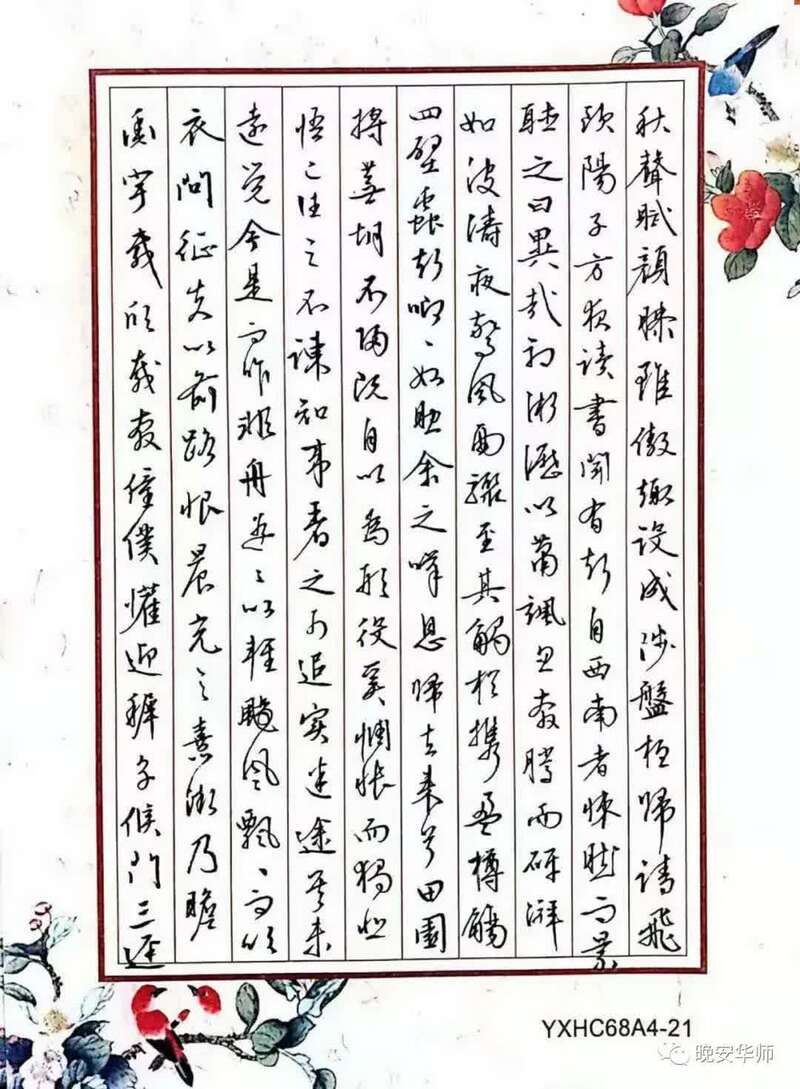 秋聲賦顏雖傲趣設成涉盤桓歸請飛
歐陽子方夜读書聞有聲自西南者悚然而
聽之曰異哉初淅瀝以蕭颯忽奔騰而砰湃
如波濤夜驚風雨驟至其觸携樽觴
四壁蟲聲唧、如助余之嘆息歸去來兮田園
將蕪胡不歸既自以為形役奚惆悵而獨悲
悟已往之不諫知来者之可追实迷途其未
遠覺今是而昨非舟遙遙以輕颺風飄、而吹
衣問征夫以前路恨晨光之熹微乃瞻
衡宇載欣載奔僮僕懽迎稚子候門三逕
YXHC68A4-21
晚安华师